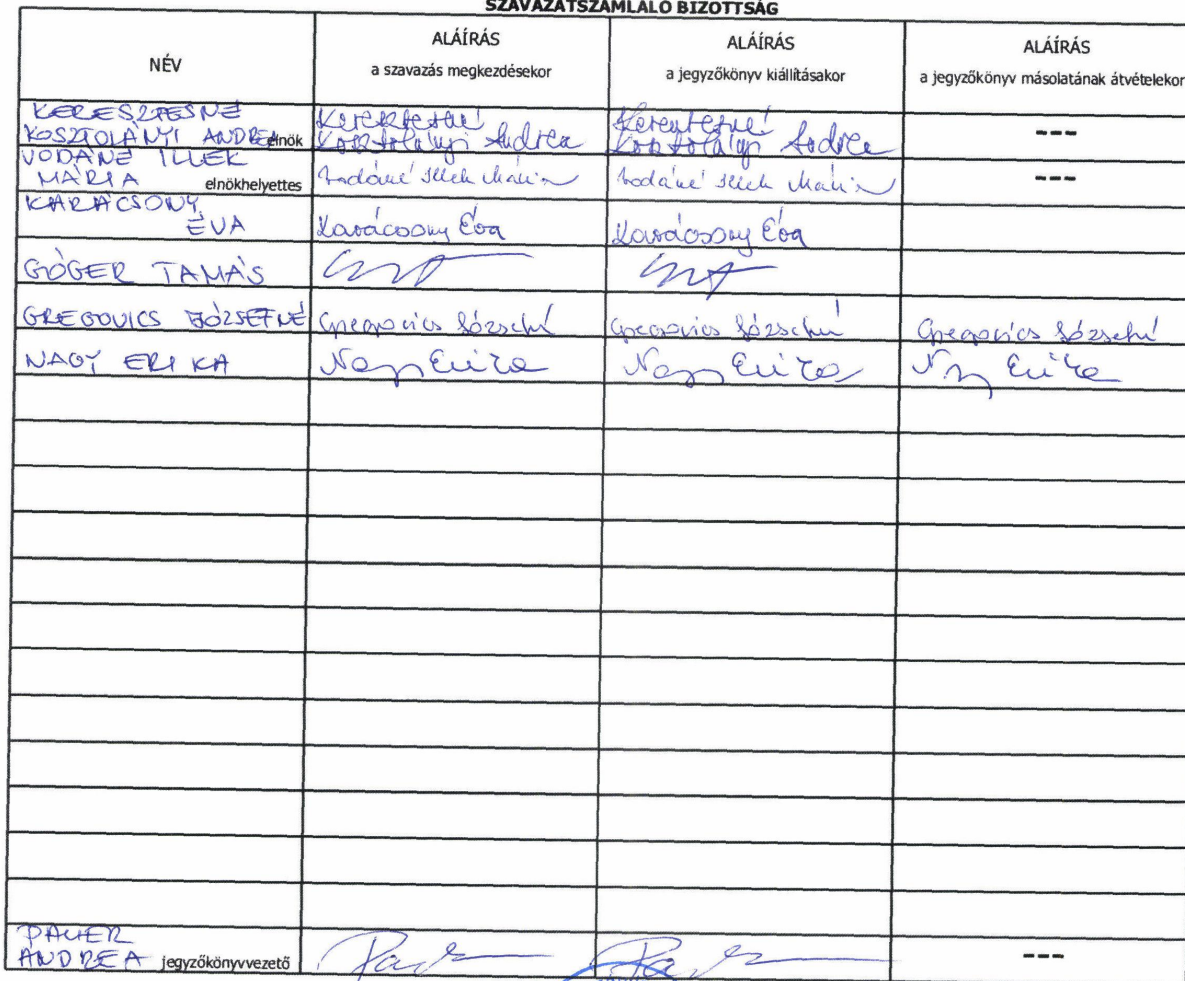 SZAVAZATSZÁMLÁLÓ BIZOTTSÁG
NÉV
ALÁÍRÁS
a szavazás megkezdésekor
ALÁÍRÁS
a jegyzőkönyv kiállításakor
ALÁÍRÁS
a jegyzőkönyv másolatának átvételekor
KERESZTESNÉ
KOSZTOLÁNYI ANDREA elnök
Keresztesné
Kosztolányi Andrea
Keresztesné
Kosztolányi Andrea
---
VODÁNÉ ILLEK
MÁRIA elnökhelyettes
Vodáné Illek Mária
Vodáné Illek Mária
---
KARÁCSONY
ÉVA
Karácsony Éva
Karácsony Éva
GÓGER TAMÁS
GREGOVICS JÓZSEFNÉ
Gregovics Józsefné
Gregovics Józsefné
Gregovics Józsefné
NAGY ERIKA
Nagy Erika
Nagy Erika
Nagy Erika
PAUER
ANDREA jegyzőkönyvvezető
---